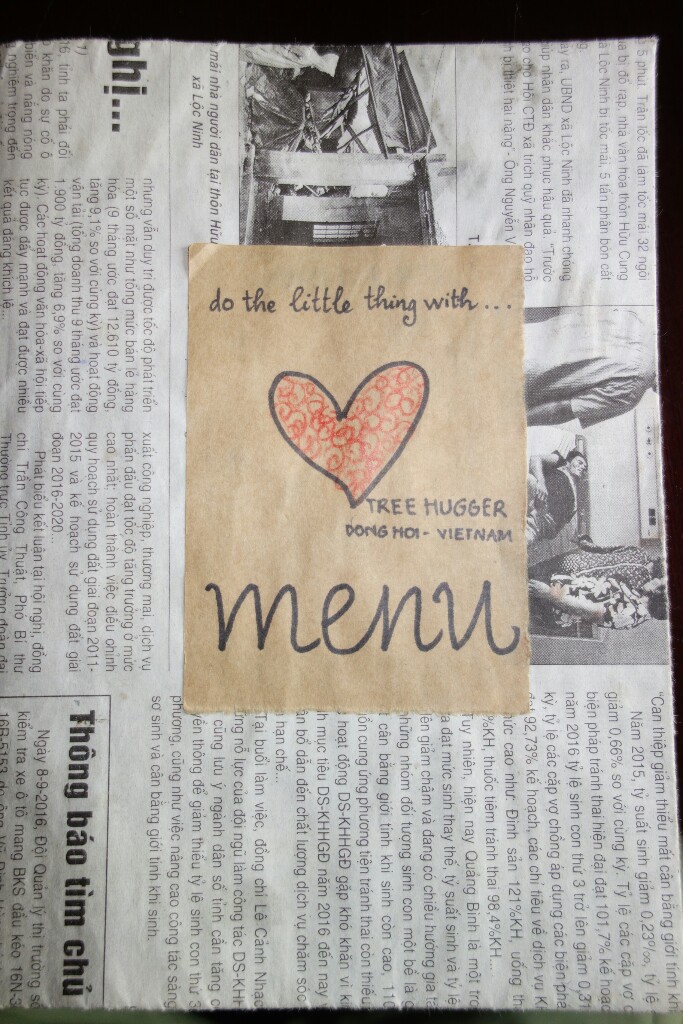 do the little thing with...
TREE HUGGER
DONG HOI - VIETNAM
menu
ghị...
mái nhà người dân tại thôn Hữu
xã Lộc Ninh
5 phút. Trận lốc đã làm tốc mái 32 ngôi
bị đổ rạp, nhà văn hóa thôn Hữu Cung
Lộc Ninh bị tốc mái, 5 tấn phân bón cát
ra, UBND xã Lộc Ninh đã nhanh chóng
nhân dân khắc phục hậu quả. “Trước
cho Hội CTĐ xã trích quỹ nhân đạo hỗ
bị thiệt hại nặng”- Ông Nguyễn V
tỉnh ta phải đối
khăn do sự cố ô
biển và nắng nóng
nghiêm trọng đến
nhưng vẫn duy trì được tốc độ phát triển
một số mặt như tổng mức bán lẻ hàng
hóa (9 tháng ước đạt 12.610 tỷ đồng,
tăng 9,1% so với cùng kỳ) và hoạt động
vận tải (tổng doanh thu 9 tháng ước đạt
1.900 tỷ đồng, tăng 6,9% so với cùng
kỳ). Các hoạt động văn hóa-xã hội tiếp
tục được đẩy mạnh và đạt được nhiều
kết quả đáng khích lệ...
xuất công nghiệp, thương mại, dịch vụ
phấn đấu đạt tốc độ tăng trưởng ở mức
cao nhất; hoàn thành việc điều chỉnh
quy hoạch sử dụng đất giai đoạn 2011-
2015 và kế hoạch sử dụng đất giai
đoạn 2016-2020...
Phát biểu kết luận tại hội nghị, đồng
chí Trần Công Thuật, Phó Bí thư
Thường trực Tỉnh ủy, Trưởng đoàn đại
Thông báo tìm chủ
Ngày 8-9-2016, Đội Quản lý thị trường số
kiểm tra xe ô tô mang BKS đầu kéo 16N-3
“Can thiệp giảm thiểu mất cân bằng giới tính kh
Năm 2015, tỷ suất sinh giảm 0,23‰, tỷ lệ
giảm 0,66% so với cùng kỳ. Tỷ lệ các cặp vợ c
biện pháp tránh thai hiện đại đạt 101,7% kế hoạc
năm 2016 tỷ lệ sinh con thứ 3 trở lên giảm 0,3
kỳ, tỷ lệ các cặp vợ chồng áp dụng các biện pha
92,73% kế hoạch, các chỉ tiêu về dịch vụ K
ức cao như: Đình sản 121%KH, uống th
%KH, thuốc tiêm tránh thai 98,4%KH...
Tuy nhiên, hiện nay Quảng Bình là một tro
đạt mức sinh thay thế, tỷ suất sinh và tỷ lệ
giảm chậm và đang có chiều hướng gia tă
những nhóm đối tượng sinh con một bề là g
cân bằng giới tính khi sinh còn cao, 110
ồn cung ứng phương tiện tránh thai còn thiếu
hoạt động DS-KHHGĐ gặp khó khăn vì k
mục tiêu DS-KHHGĐ năm 2016 đến nay v
bổ dẫn đến chất lượng dịch vụ chăm sóc s
hạn chế...
Tại buổi làm việc, đồng chí Lê Cảnh Nhạc
nỗ lực của đội ngũ làm công tác DS-KHH
cũng lưu ý ngành dân số tỉnh cần tăng c
thông để giảm thiểu tỷ lệ sinh con thứ 3
phương, cũng như việc nâng cao công tác sàng
sơ sinh và cân bằng giới tính khi sinh.